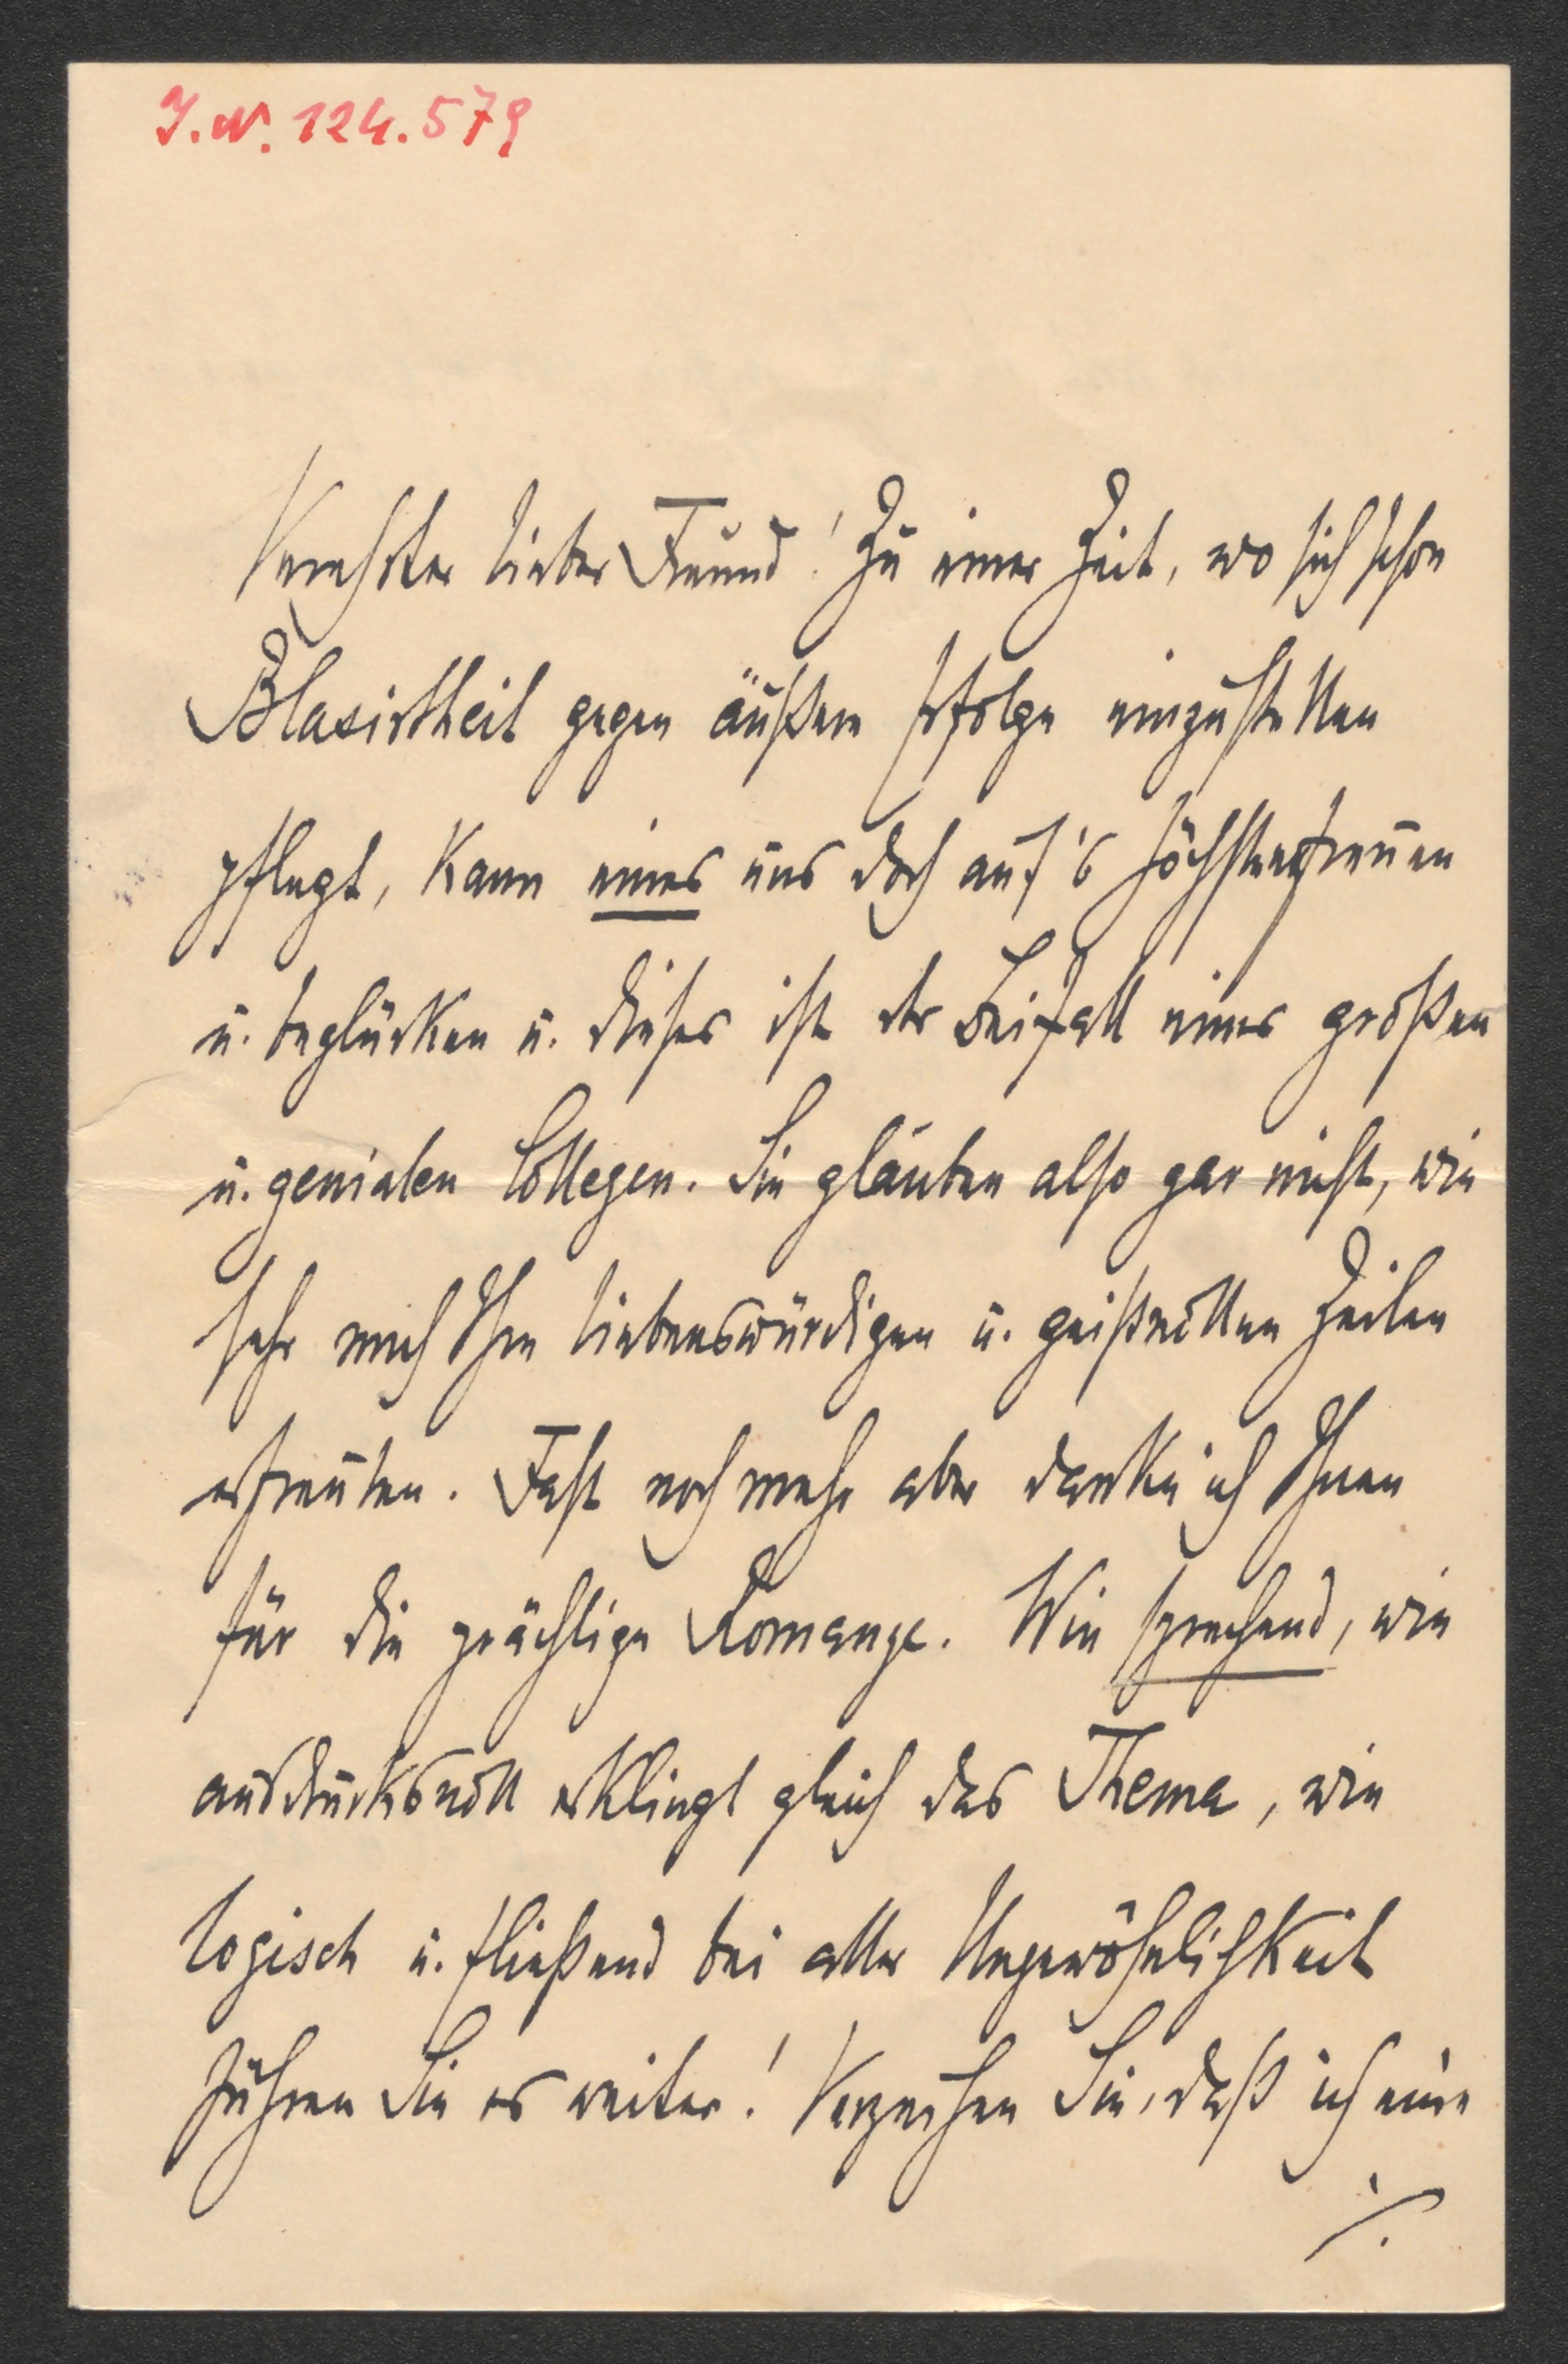 J.N. 124.579
Verehrter lieber Freund! Zu einer Zeit, wo sich schon
Blasirtheit gegen äußere Erfolge einzustellen
pflegt, kann eines uns doch auf's höchste erfreuen
u. beglücken u. dieses ist der Beifall eines großen
u. genialen Collegen. Sie glauben also gar nicht, wie
sehr mich Ihre liebenswürdigen u. geistvollen Zeilen
erfreuten. Fast noch mehr aber danke ich Ihnen
für die prächtige Romanze. Wie sprechend, wie
ausdrucksvoll erklingt gleich das Thema, wie
logisch u. fließend bei aller Ungewöhnlichkeit
führen Sie es weiter! Verzeihen Sie, daß ich eine
./.